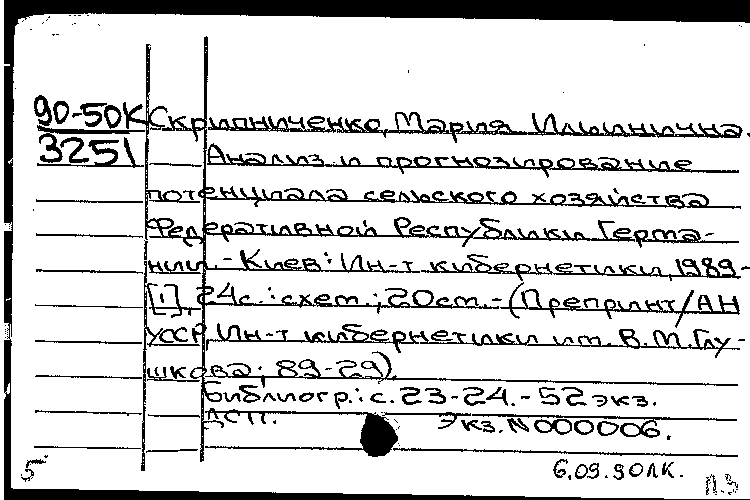 90-50К Скрипниченко, Мария Ильинична.
3251 Анализ и прогнозирование
потенциала сельского хозяйства
Федеративной Республики Герма-
нии. - Киев: Ин-т кибернетики, 1989-
[1], 24с.: схем.; 20см. - (Препринт/АН
УССР, Ин-т кибернетики им. В.М.Глу-
шкова; 89-29).
Библиогр.: с. 23-24. - 52 экз.
ДСП. Экз.N000006.
5 6.09.90ЛК.